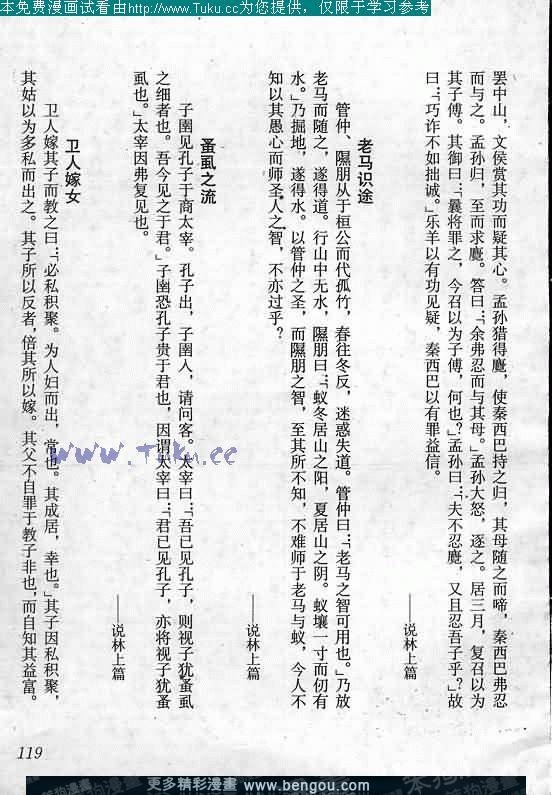 本免费漫画试看由http://www.Tuku.cc为您提供，仅限于学习参考
罢中山，文侯赏其功而疑其心。孟孙猎得麑，使秦西巴持之归，其母随之而啼，秦西巴弗忍
而与之。孟孙归，至而求麑。答曰：「余弗忍而与其母。」孟孙大怒，逐之。居三月，复召以为
其子傅。其御曰：「曩将罪之，今召以为子傅，何也？」孟孙曰：「夫不忍麑，又且忍吾子乎？」故
曰：「巧诈不如拙诚。」乐羊以有功见疑，秦西巴以有罪益信。
——说林上篇
老马识途
管仲、隰朋从于桓公而伐孤竹，春往冬反，迷惑失道。管仲曰：「老马之智可用也。」乃放
老马而随之，遂得道。行山中无水，隰朋曰：「蚁冬居山之阳，夏居山之阴。蚁壤一寸而仞有
水。」乃掘地，遂得水。以管仲之圣，而隰朋之智，至其所不知，不难师于老马与蚁，今人不
知以其愚心而师圣人之智，不亦过乎？
——说林上篇
蚤虱之流
子圉见孔子于商太宰。孔子出，子圉入，请问客。太宰曰：「吾已见孔子，则视子犹蚤虱
之细者也。吾今见之于君。」子圉恐孔子贵于君也，因谓太宰曰：「君已见孔子，亦将视子犹蚤
虱也。」太宰因弗复见也。
——说林上篇
卫人嫁女
卫人嫁其子而教之曰：「必私积聚。为人妇而出，常也。其成居，幸也。」其子因私积聚，
其姑以为多私而出之。其子所以反者，倍其所以嫁。其父不自罪于教子非也，而自知其益富。
www.Tuku.cc
119
更多精彩漫畫 www.bengou.com